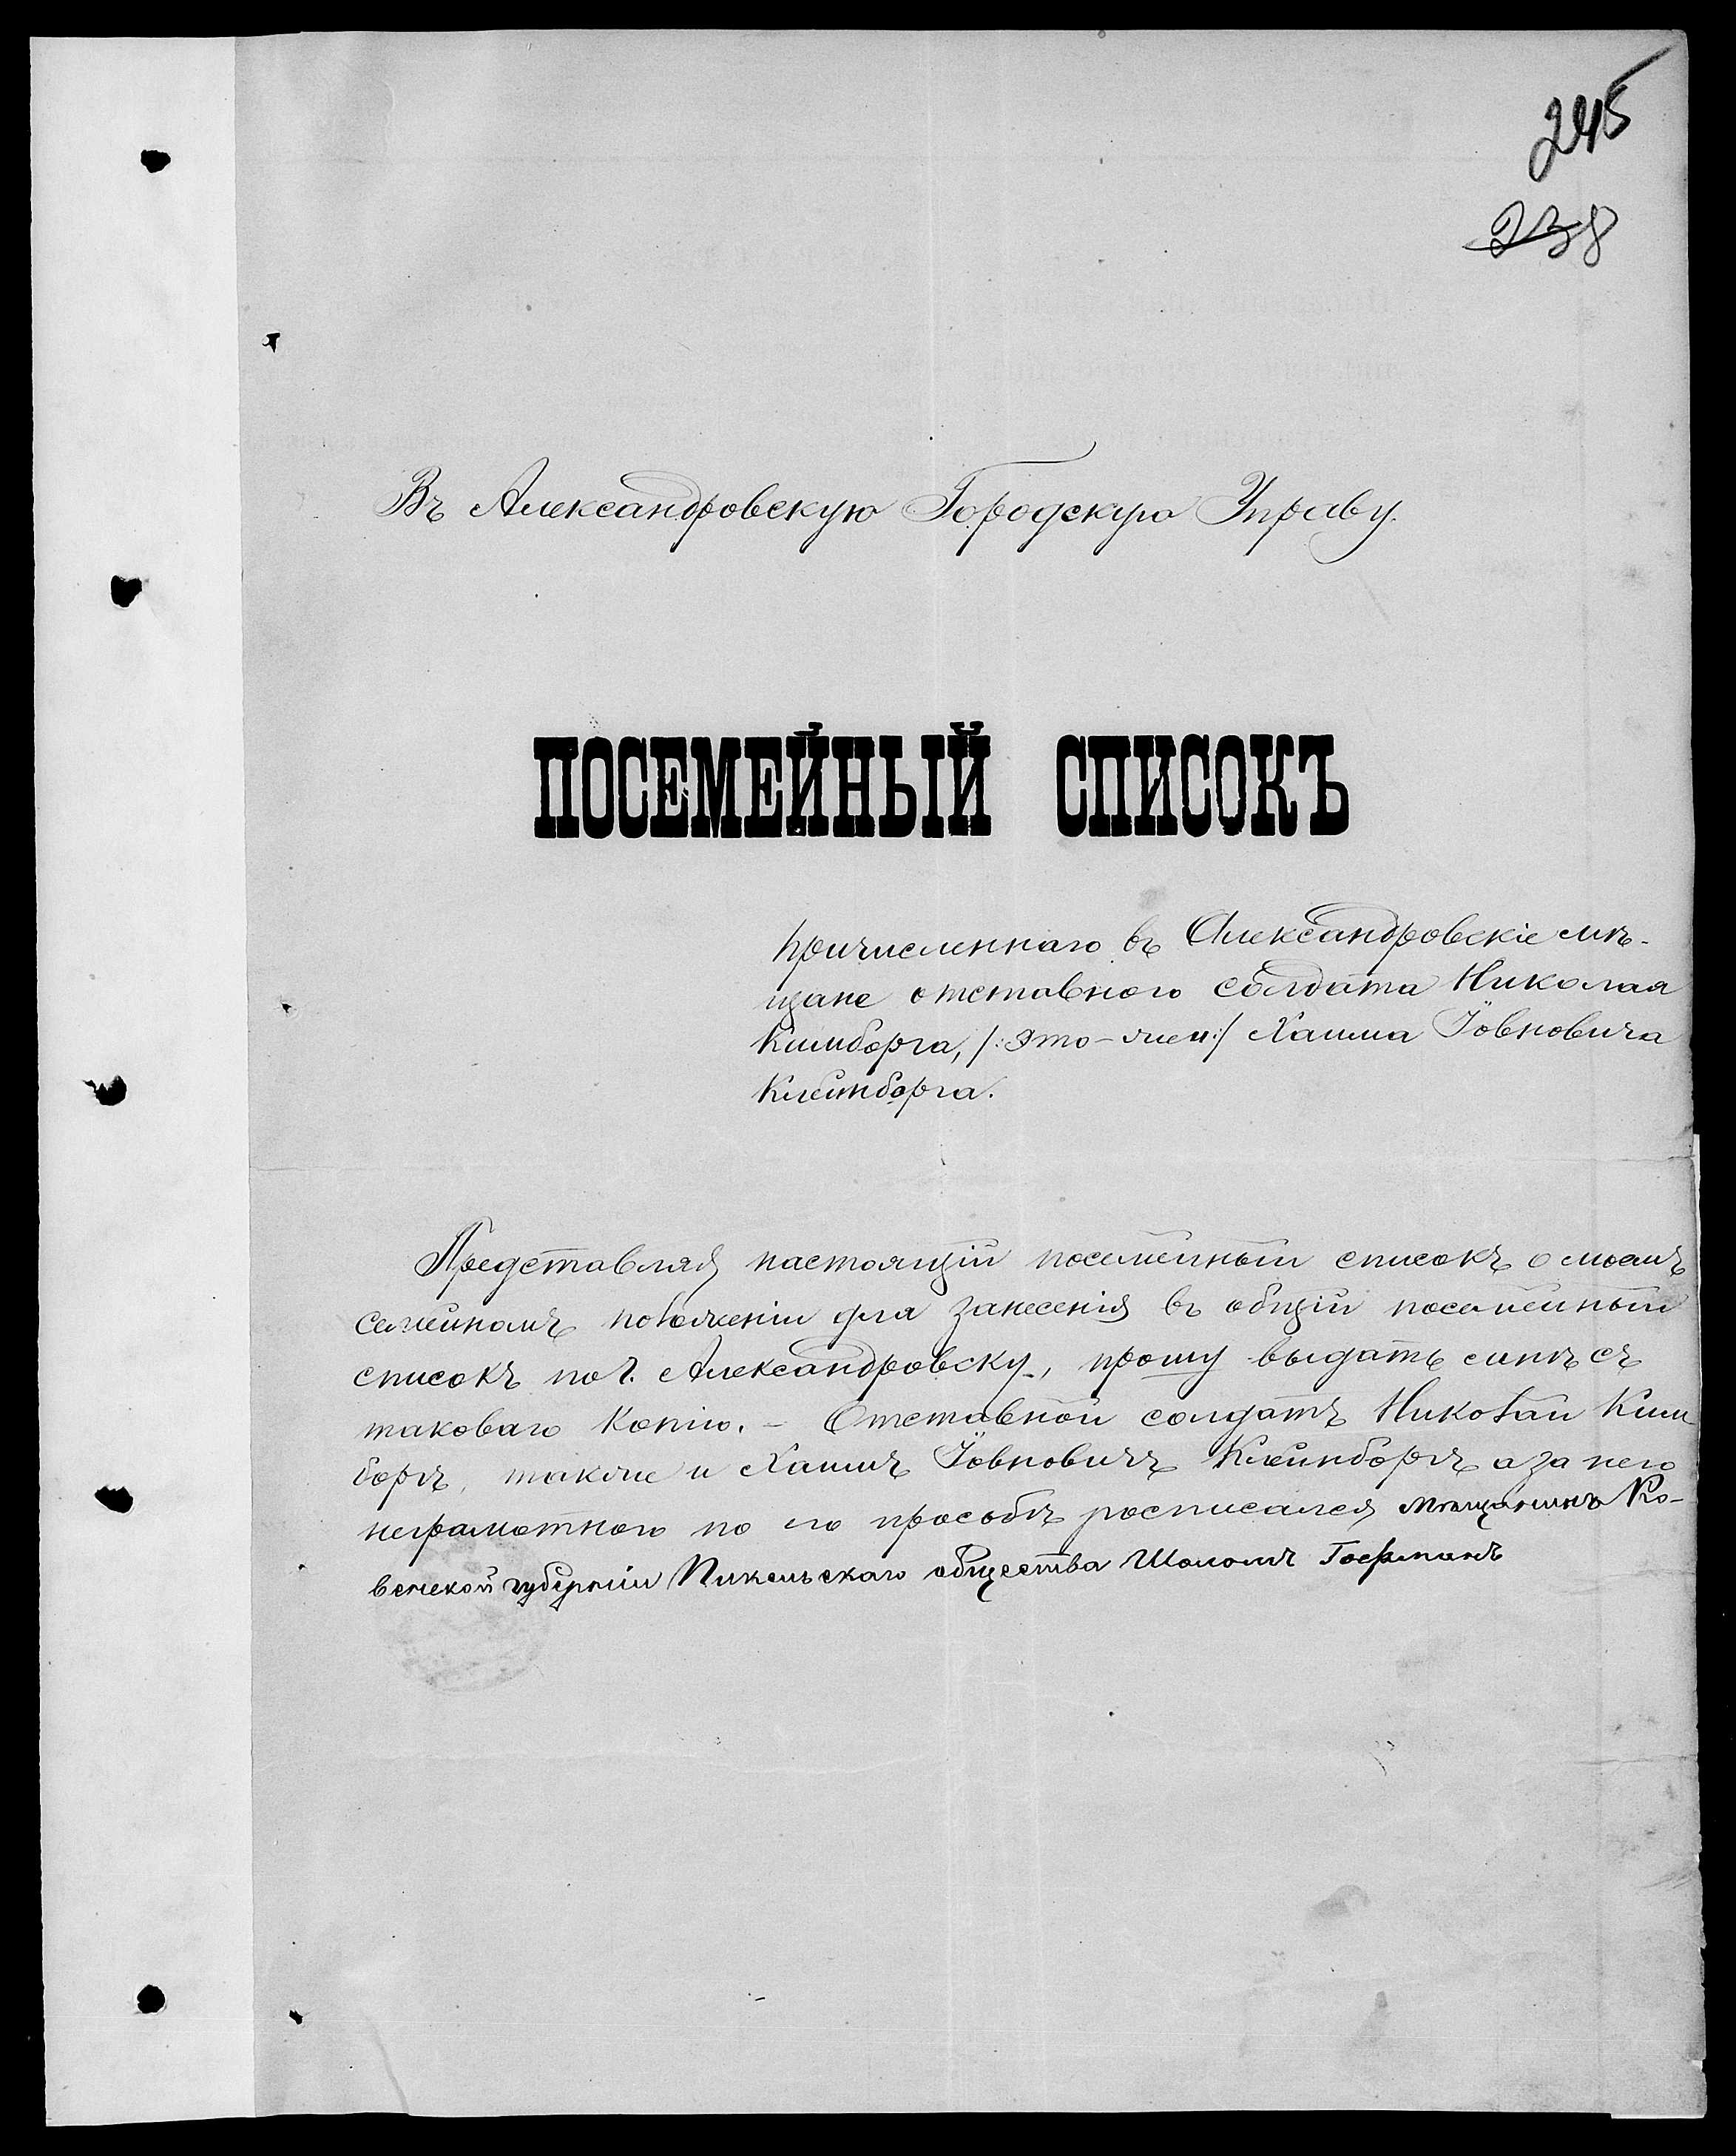 245
238
Въ Александровскую Городскую Управу.
ПОСЕМЕЙНЫЙ СПИСОКЪ
причисленнаго въ Александровскіе мѣ-
щане отставного солдата Николая
Кимборга, /: это-же и :/ Хаима Іовновича
Клейнборга.
Представляя настоящій посемейный списокъ о моемъ
семейномъ положеніи для занесенія въ общій посемейный
списокъ по г. Александровску, прошу выдать мнѣ съ
таковаго копію. - Отставной солдатъ Николай Ким-
боргъ, также и Хаимъ Іовновичъ Клейнборгъ а за него
неграмотного по его просьбѣ росписался мѣщанинъ Ко-
венской губерніи Пикельскаго общества Шоломъ Гофманъ